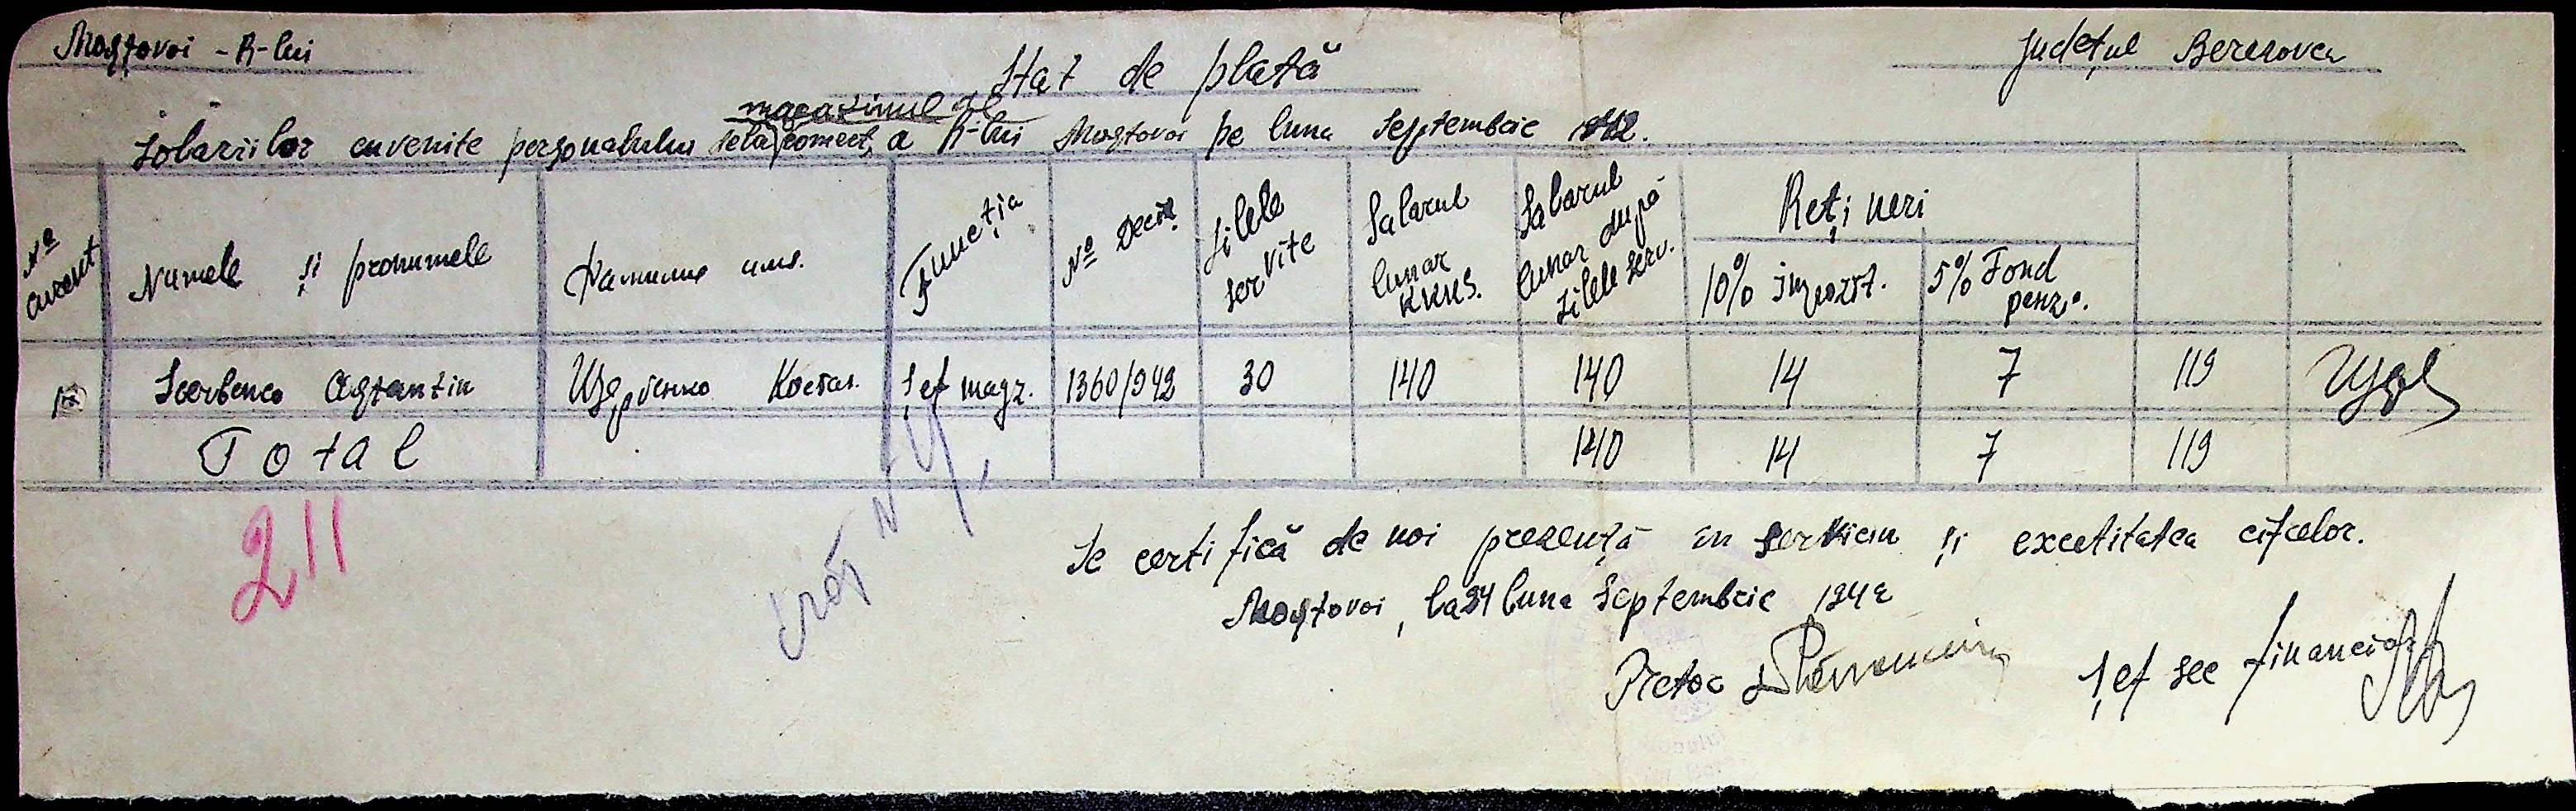 Mostovoi - R-lui
Judeţul Beresovca
Stat de plată
magazinul de
Solariilor cuvenite personalului dela comerţ a R-lui Mostovoi pe luna Septembrie 1942.
Nº curent
Numele şi pronumele
Funcţia
Nº Deciz.
Zilele servite
Salarul lunar RKKS.
Salarul lunar după zilele serv.
Reţineri
10% impozit.
5% Fond penz.
1 Scerbenco Costantin Щербенко Костан. Şef magz. 1360/942 30 140 140 14 7 119
Total 140 14 7 119
211
Se certifică de noi prezenţă în serviciu şi exactitatea cifrelor.
Mostovoi, la 24 luna Septembrie 1942
Pretor
Şef sec financiar